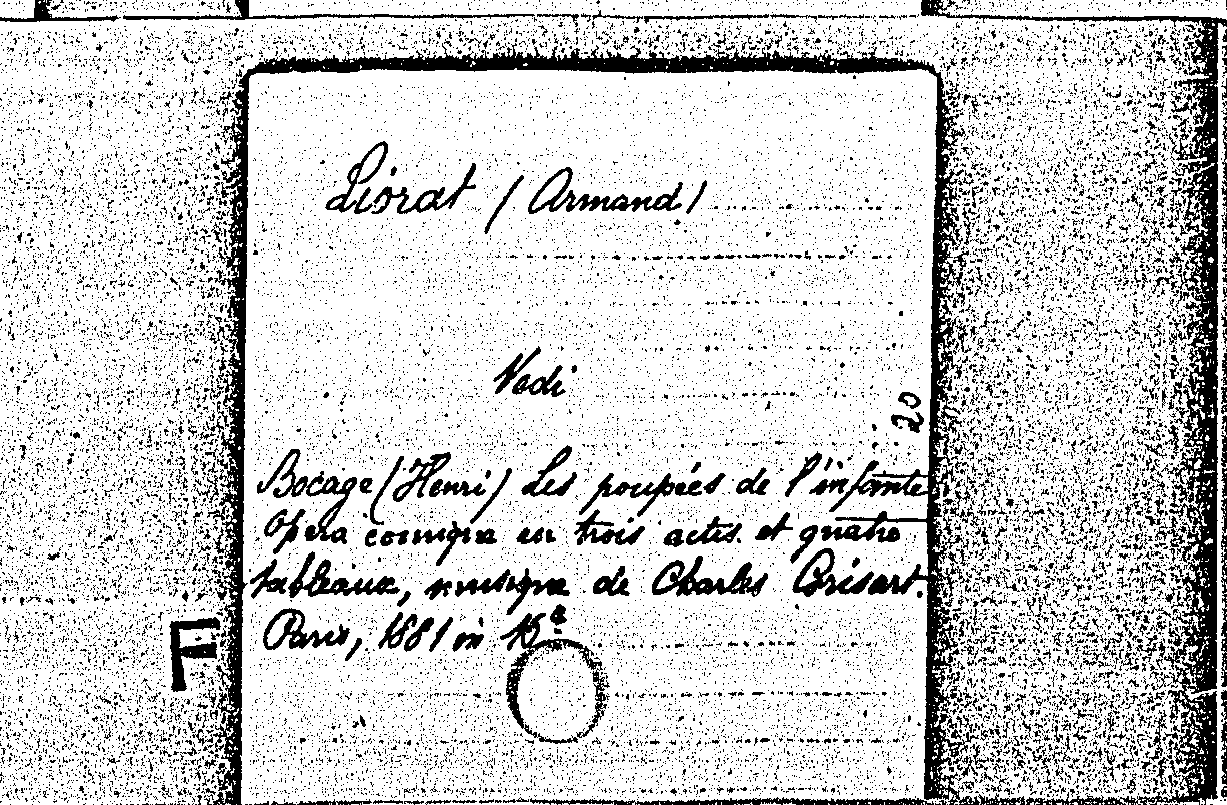 Liorat (Armand)
Vedi
20
Bocage (Henri) Les poupées de l'infante
Opéra comique en trois actes et quatre
tableaux, musique de Charles Grisart.
Paris, 1881 in
F